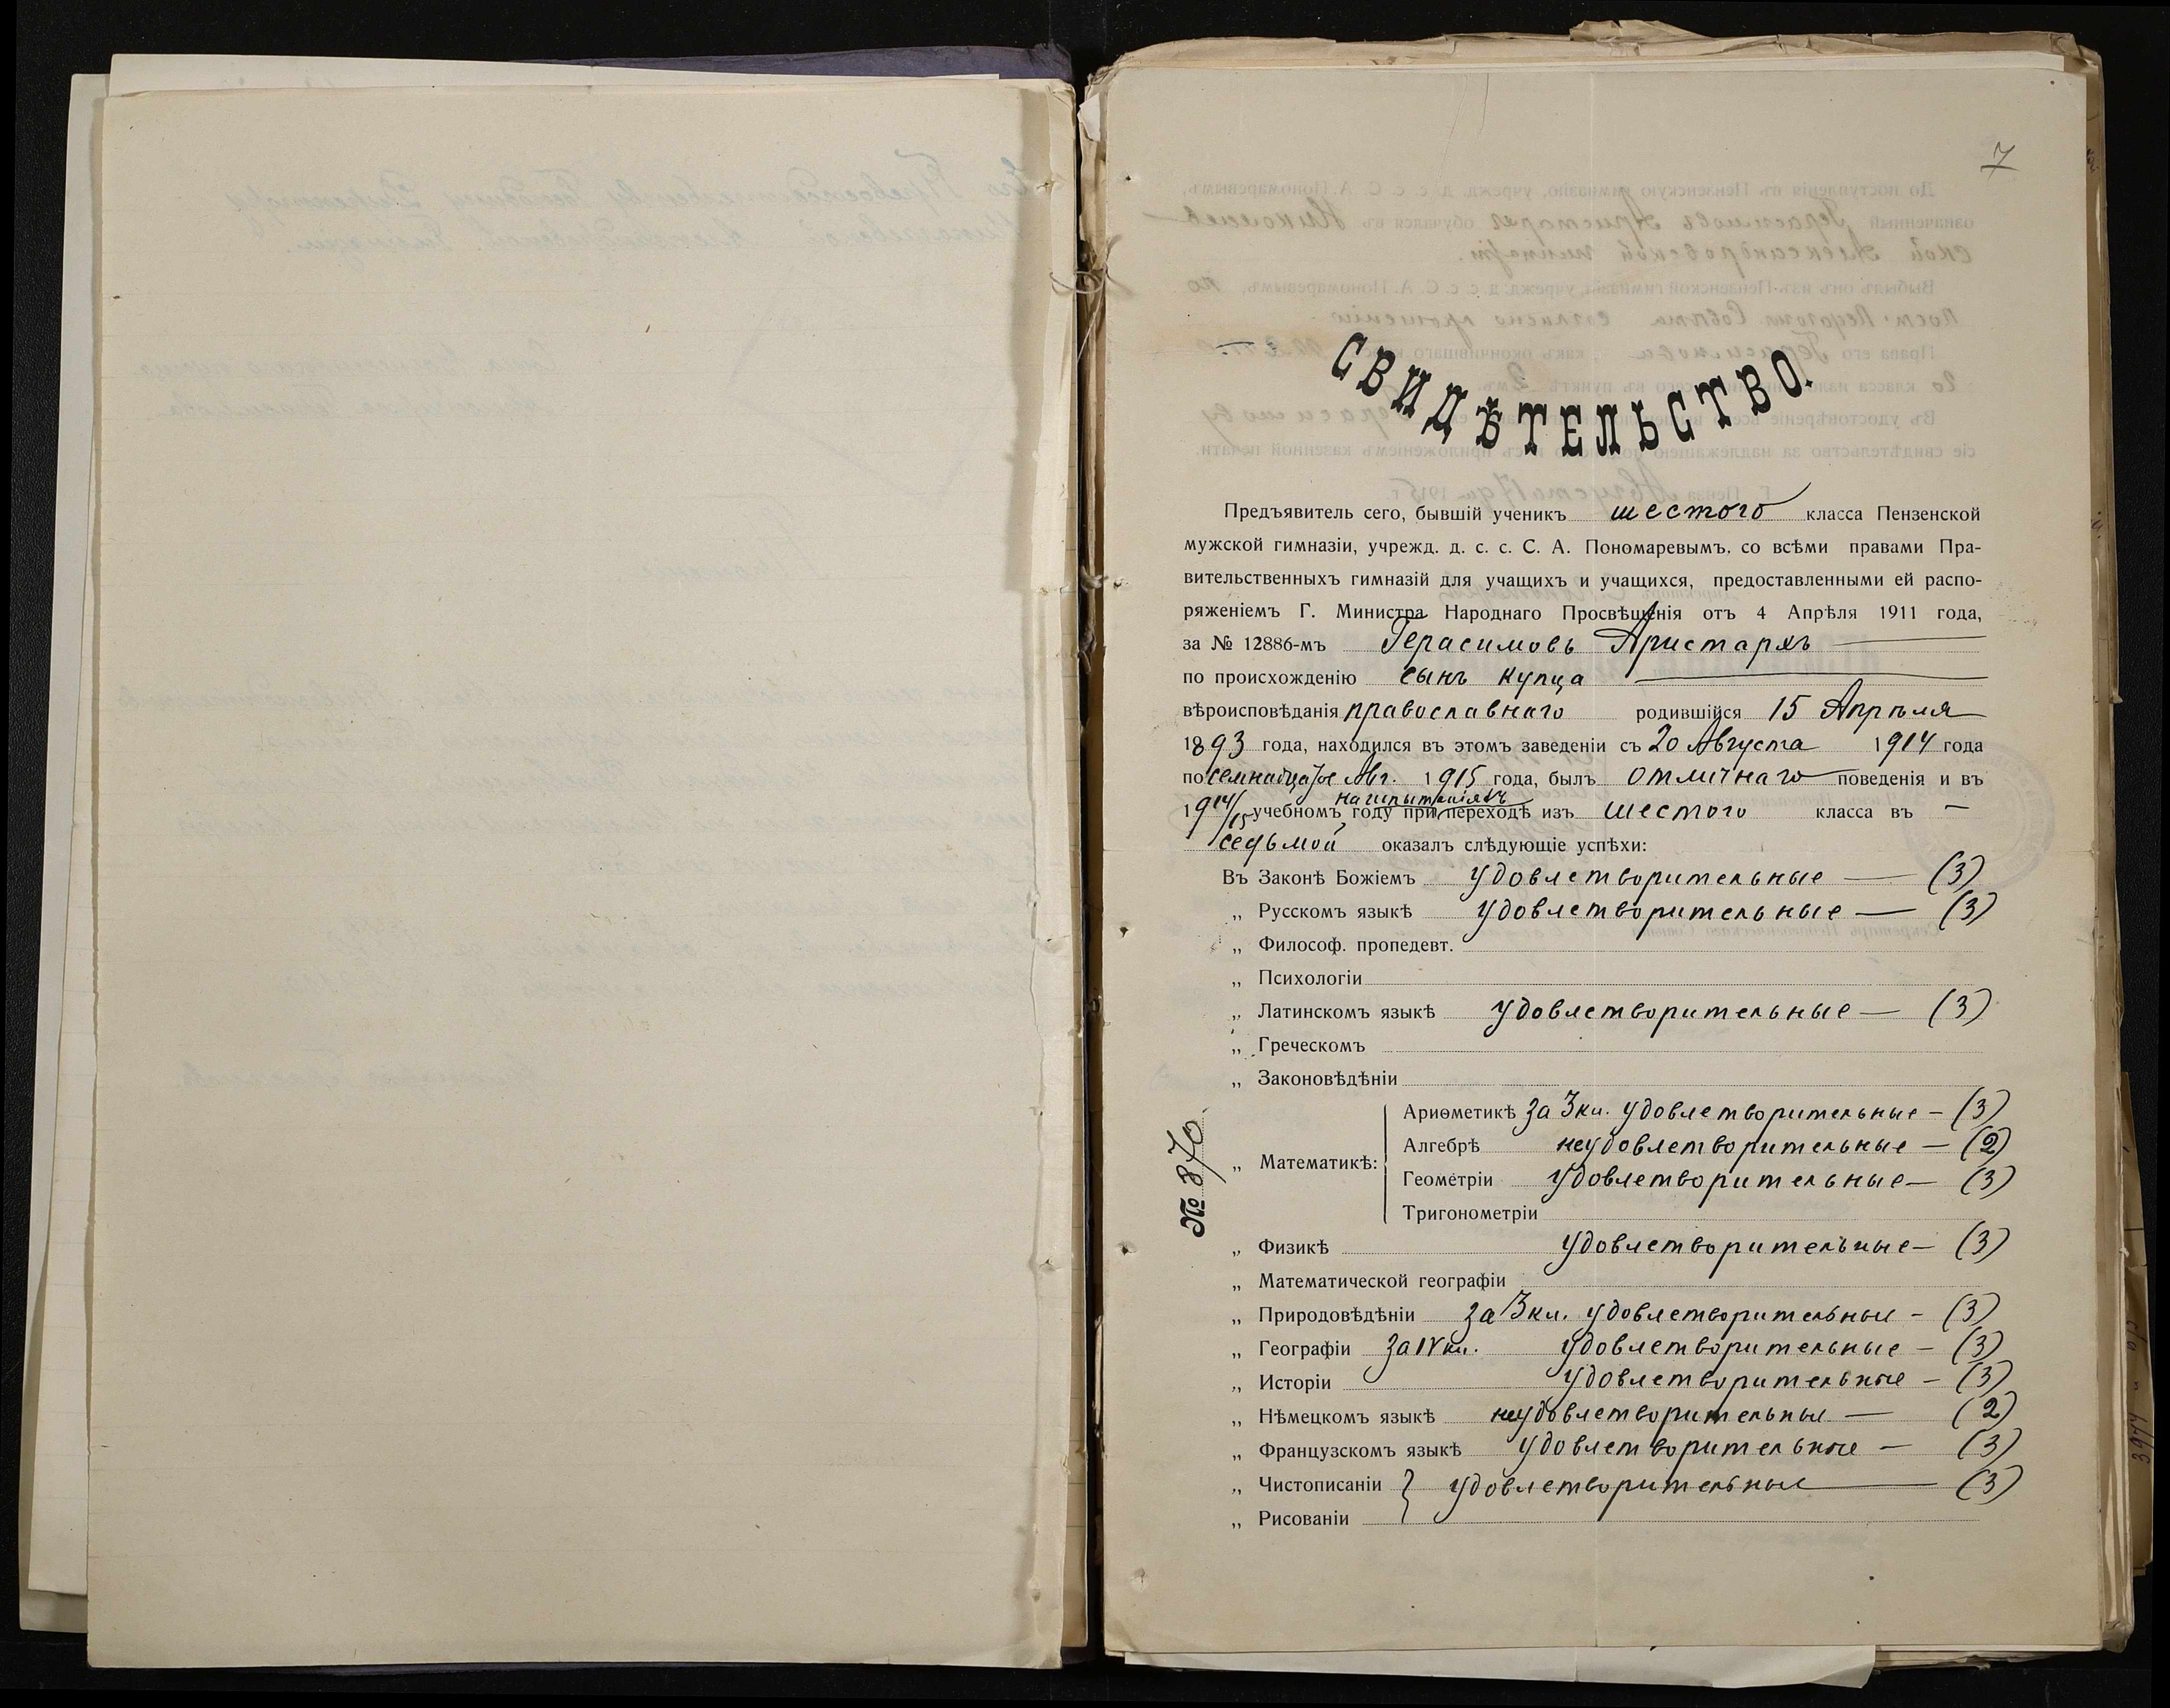 7
СВИДѢТЕЛЬСТВО.
Предъявитель сего, бывшій ученикъ шестого класса Пензенской
мужской гимназіи, учрежд. д. с. с. С. А. Пономаревымъ, со всѣми правами Пра-
вительственныхъ гимназій для учащихъ и учащихся, предоставленными ей распо-
ряженіемъ Г. Министра Народнаго Просвѣщенія отъ 4 Апрѣля 1911 года,
за № 12886-мъ Герасимовъ Аристархъ
по происхожденію сынъ купца
вѣроисповѣданія православнаго родившійся 15 Апрѣля
1893 года, находился въ этомъ заведеніи съ 20 Августа 1914 года
по семнадцатое Авг. 1915 года, былъ отличнаго поведенія и въ
на испытаніяхъ
1914/15 учебномъ году при переходѣ изъ шестого класса въ —
седьмой оказалъ слѣдующіе успѣхи:
Въ Законѣ Божіемъ удовлетворительные — (3)
„ Русскомъ языкѣ удовлетворительные — (3)
„ Философ. пропедевт.
„ Психологіи
„ Латинскомъ языкѣ удовлетворительные — (3)
„ Греческомъ
„ Законовѣдѣніи
Ариѳметикѣ за 3 кл. удовлетворительные — (3)
Алгебрѣ неудовлетворительные — (2)
„ Математикѣ:
Геометріи удовлетворительные — (3)
Тригонометріи
„ Физикѣ удовлетворительные — (3)
„ Математической географіи
„ Природовѣдѣніи за 3 кл. удовлетворительные — (3)
„ Географіи за IV кл. удовлетворительные — (3)
„ Исторіи удовлетворительные — (3)
„ Нѣмецкомъ языкѣ неудовлетворительные — (2)
„ Французскомъ языкѣ удовлетворительные — (3)
„ Чистописаніи } удовлетворительные — (3)
„ Рисованіи
№ 370